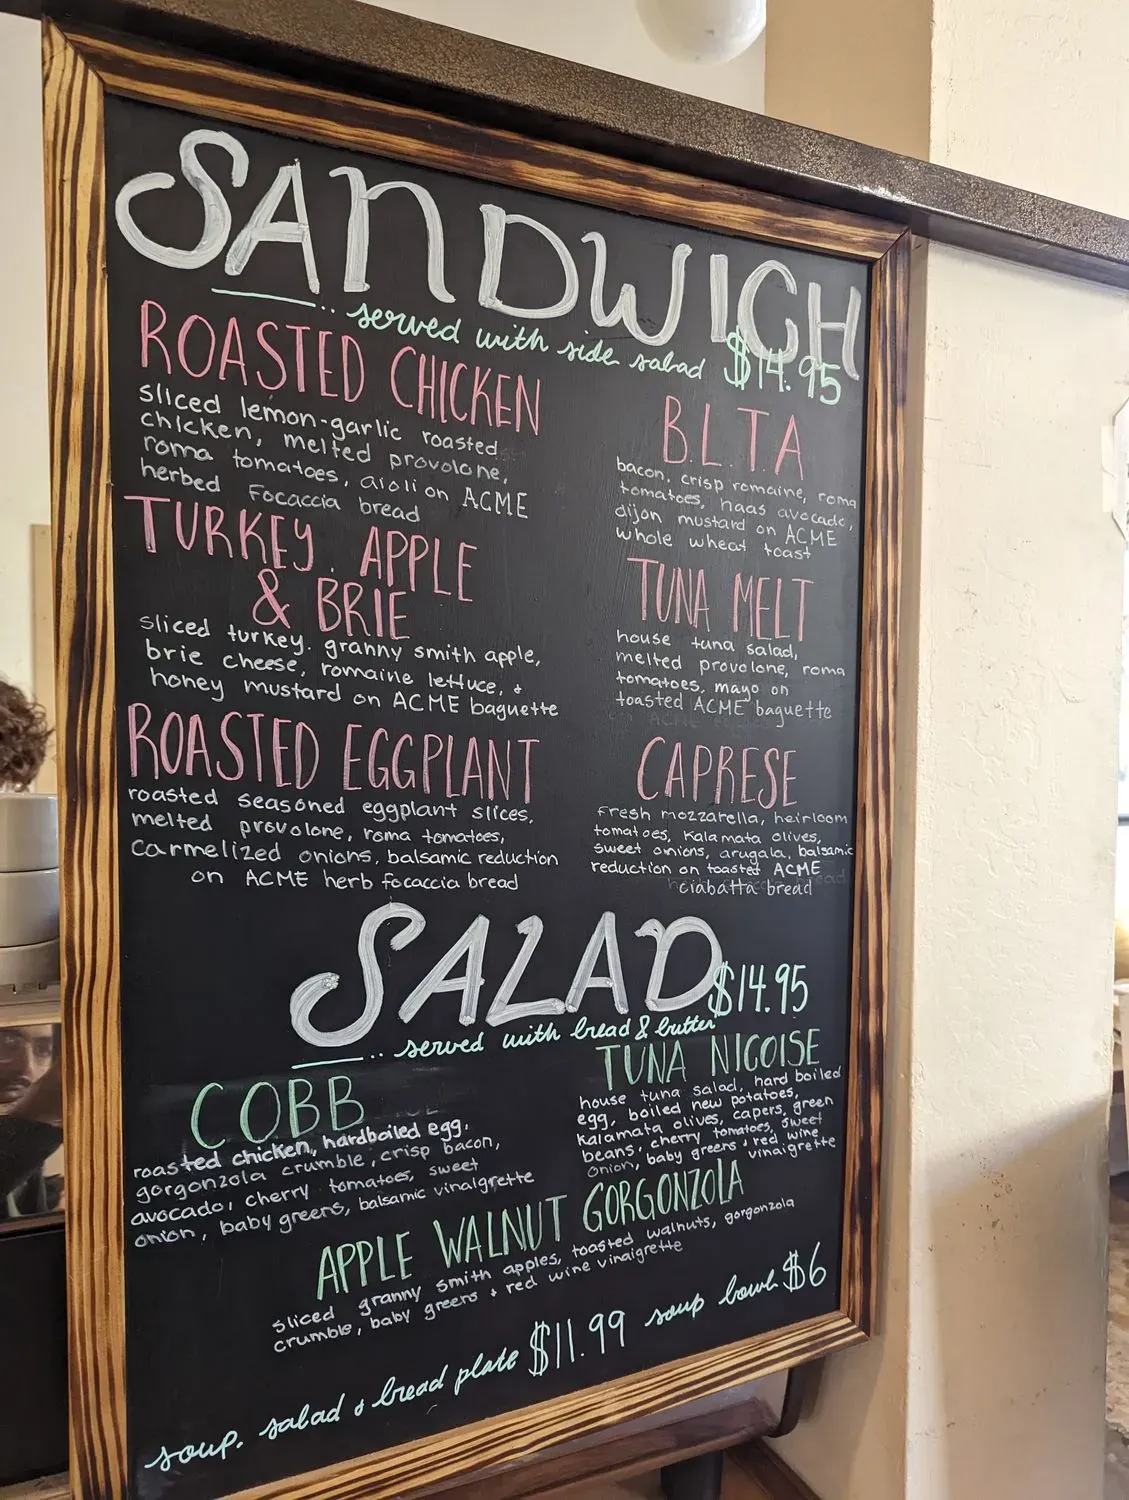 SANDWICH
.. served with side salad $14.95
ROASTED CHICKEN
sliced lemon-garlic roasted
chicken, melted provolone,
roma tomatoes, aioli on ACME
herbed focaccia bread
TURKEY, APPLE
& BRIE
sliced turkey, granny smith apple,
brie cheese, romaine lettuce, &
honey mustard on ACME baguette
ROASTED EGGPLANT
roasted seasoned eggplant slices,
melted provolone, roma tomatoes,
carmelized onions, balsamic reduction
on ACME herb focaccia bread
B.L.T.A
bacon, crisp romaine, roma
tomatoes, haas avocado,
dijon mustard on ACME
whole wheat toast
TUNA MELT
house tuna salad,
melted provolone, roma
tomatoes, mayo on
toasted ACME baguette
CAPRESE
fresh mozzarella, heirloom
tomatoes, kalamata olives,
sweet onions, arugala, balsamic
reduction on toasted ACME
ciabatta bread
SALAD $14.95
.. served with bread & butter
COBB
roasted chicken, hardboiled egg,
gorgonzola crumble, crisp bacon,
avocado, cherry tomatoes, sweet
onion, baby greens, balsamic vinaigrette
TUNA NICOISE
house tuna salad, hard boiled
egg, boiled new potatoes,
kalamata olives, capers, green
beans, cherry tomatoes, sweet
onion, baby greens & red wine vinaigrette
APPLE WALNUT GORGONZOLA
sliced granny smith apples, toasted walnuts, gorgonzola
crumble, baby greens & red wine vinaigrette
soup, salad & bread plate $11.99 soup bowl $6